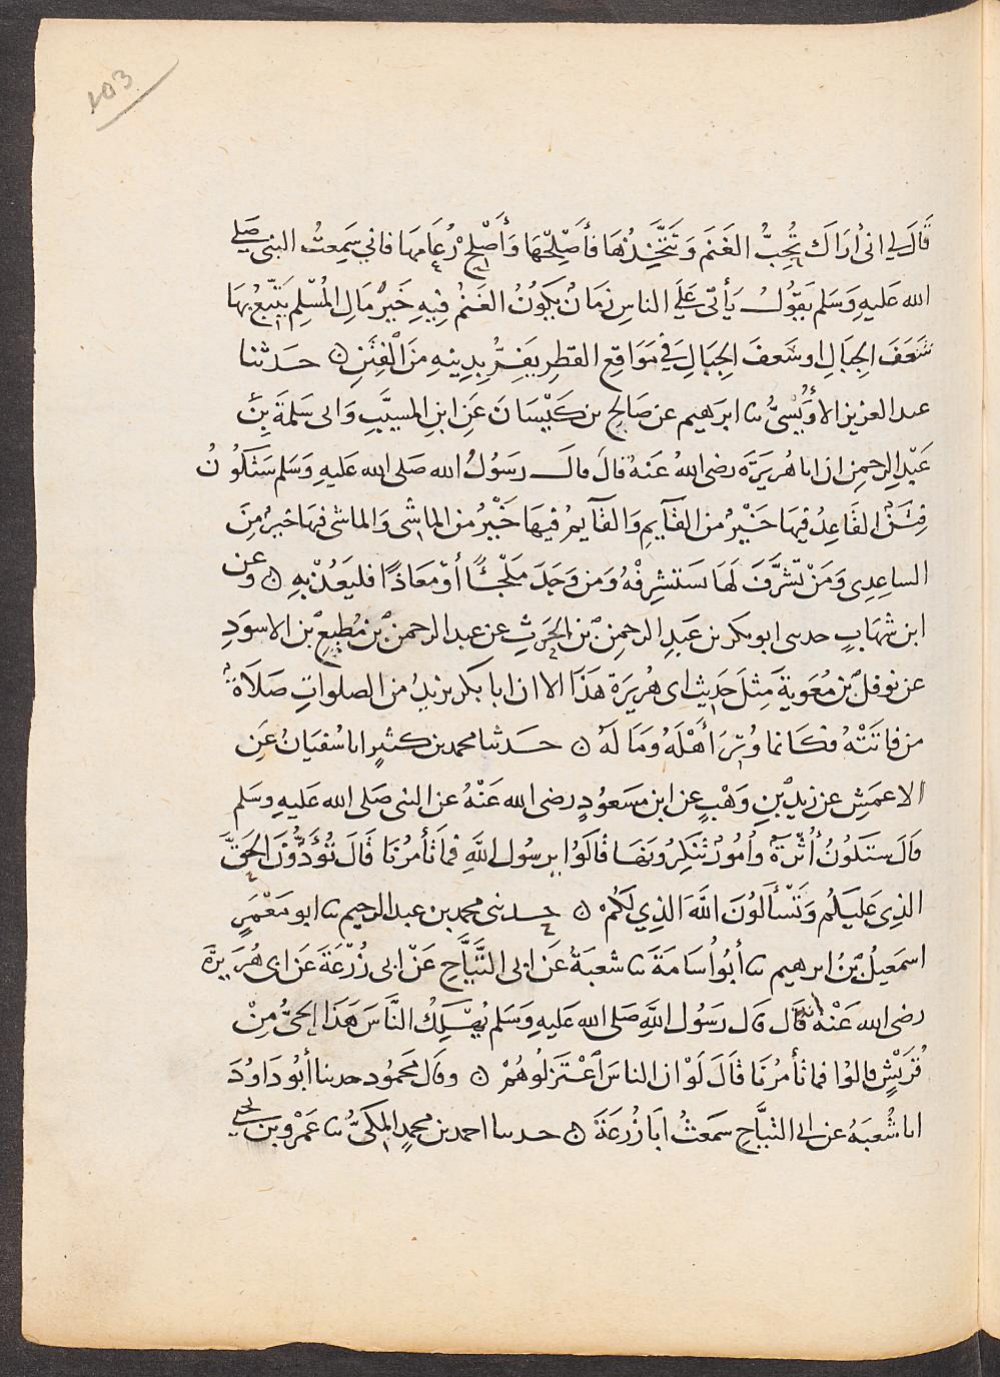 103
قَالَ لِي اني أَرَاكَ تُحِبُّ الغَنَمَ وَتَتَّخِذُهَا فَأَصْلِحْهَا وَأَصْلِحْ رُعَامَهَا فاني سَمِعتُ النبي صَلى
الله عَليهِ وَسَلم يَقوُلُ يَأتي عَلَى الناسِ زمَانٌ يَكوُنُ الغَنمُ فِيهِ خَيْرَ مَالِ المُسْلِم يَتْبعُ بهَا
شَعَفَ الجبَالِ او سَعفَ الجبَالِ في مَوَاقِعِ القَطرِ يَفِرُّ بِدِينِهِ مِنَ الفِتَنِ ۝ حَدثنا
عبد العزيز الأُوَيْسيُّ نا ابرهيم عن صَالح بن كَيْسَانَ عَنِ ابنِ المسيَّبِ وَابي سَلمةَ بنِ
عَبْدِ الرحمن ان ابا هُريَرَة رضي اللهُ عَنهُ قالَ قالَ رسَوُلُ الله صَلى الله عَليهِ وَسَلم سَتَكوُنُ
فِتَنٌ القَاعِدُ فيهَا خَيْرٌ من القَآيمِ وَالقَآيمُ فيهَا خَيْرٌ من الماشِي وَالماشي فيهَا خيرٌ مِنَ
الساعِدِي وَمَنْ تَشرَّفَ لَهَا تَستَشرِفْهُ وَمَن وَجَدَ مَلْجَأً أوْ مَعَاذًا فليَعُذْ بهِ ۝ وعن
ابن شهَابٍ حدثني ابو بكر بن عَبدِ الرحمنِ بْنِ الحَرثِ عن عبد الرحمن بْن مُطِيعِ بْن الاسوَدِ
عن نوفل بْن مُعَويةَ مِثلَ حَدِيث ابي هُريرَة هَذَا الا ان ابا بكر يزيدُ من الصلواتِ صَلَاةٌ
من فاتَتْهُ فكَانما وُتِرَ أَهْلَهُ وَمَا لَهُ ۝ حَدثنا محمد بن كثيرٍ انا سُفيَانُ عَنِ
الاعمَشِ عن زيدِ بْنِ وَهْبٍ عن ابن مسَعوُدٍ رضي الله عَنْهُ عن النبي صَلى الله عَليهِ وسَلم
قَالَ ستَكوُنُ أُثْرَةٌ وَأُموُرٌ تُنكِرُونَهَا قَالوُا يرسُول اللَّهِ فمَا تَأمُرُنَا قَالَ تُؤَدُّوْنَ الحَقَّ
الذِي عَليكُم وَتَسْأَلوُنَ اللَّهَ الذِي لَكُمْ ۝ حدثني محمد بن عبد الرحيم نا ابو مَعْمَرٍ
اسمَعيلُ بْنُ ابرهيم نا أبوُ اُسَامَةَ نا شعبَةُ عَن ابي التَّيَّاحِ عَنْ ابي زُرْعَةَ عَن ابي هُرَيرَةَ
رضي الله عَنْهُ انه قَال قال رسَوُل اللَّهِ صَلى الله عَليهِ وَسَلم يُهْلِكُ النَّاسَ هَذَا الحَيُّ مِنْ
قُرَيْشٍ قالوُا فما تَأمُرُنَا قَالَ لَوْ ان الناسَ اعْتَزَلُوهُمْ ۝ وقال محَموُد حدثنا أبوُ دَاوُدَ
انا شُعبَةُ عن ابي التيَّاحِ سَمعَتُ ابَا زُرعَةَ ۝ حدثنا احمد بن محمدٍ المكيُّ نا عَمْرو بن يحيى